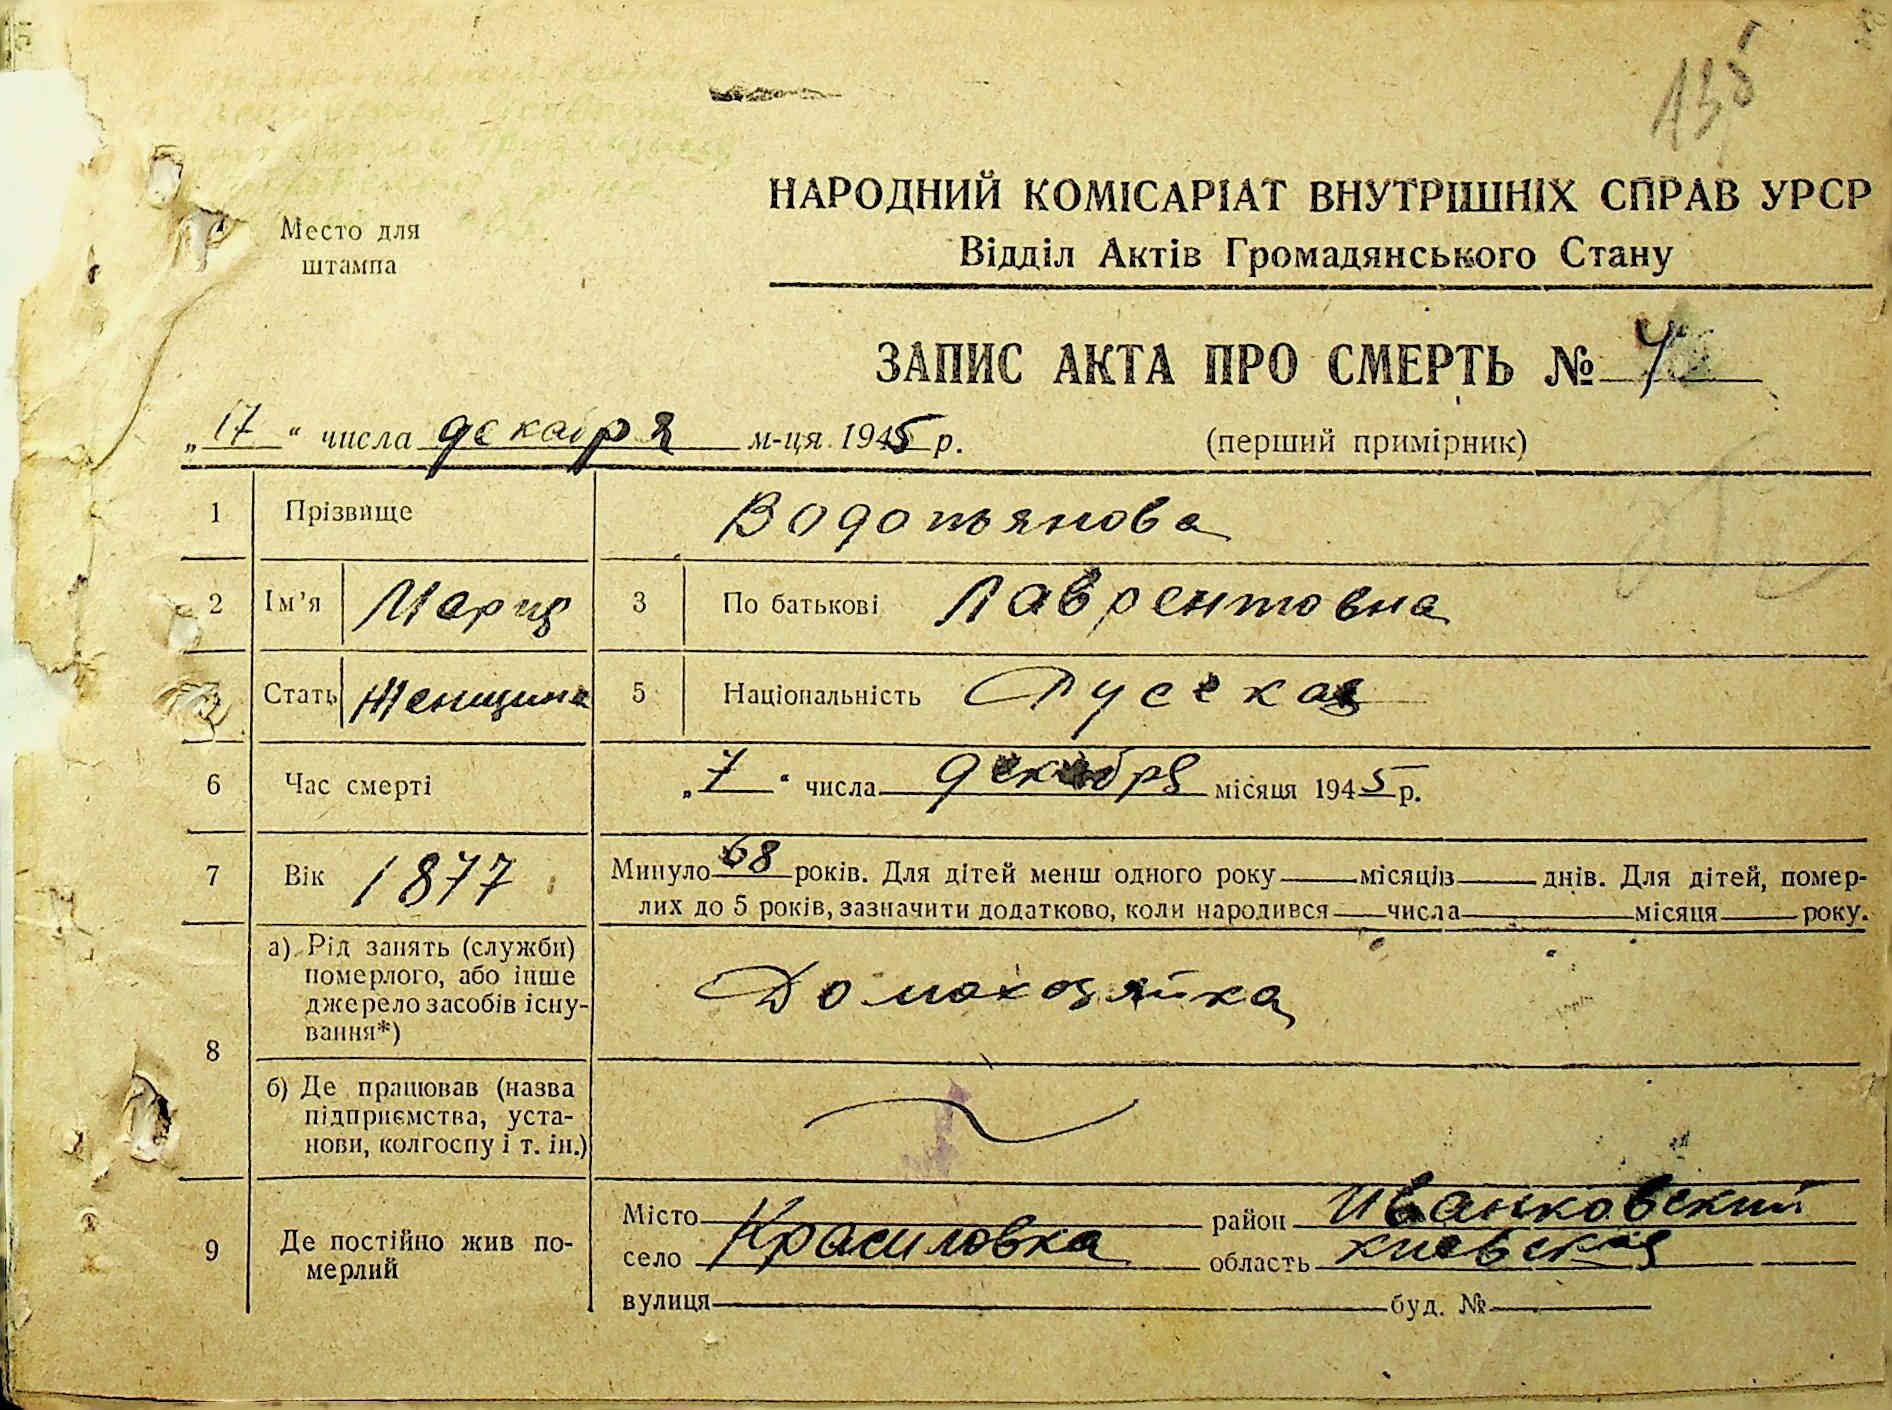 135
НАРОДНИЙ КОМІСАРІАТ ВНУТРІШНІХ СПРАВ УРСР
Відділ Актів Громадянського Стану
Место для
штампа
ЗАПИС АКТА ПРО СМЕРТЬ №
„17“ числа декабря м-ця 1945 р.
(перший примірник)
1 Прізвище Водопьянова
2 Ім'я Мария 3 По батькові Лаврентовна
Стать Женщина 5 Національність Русская
6 Час смерті „7“ числа декабря місяця 1945 р.
7 Вік 1877 Минуло 68 років. Для дітей менш одного року місяців днів. Для дітей, помер-
лих до 5 років, зазначити додатково, коли народився числа місяця року.
8 а) Рід занять (служби)
померлого, або інше
джерело засобів існу-
вання*)
Домохозяйка
б) Де працював (назва
підприємства, уста-
нови, колгоспу і т. ін.)
9 Де постійно жив по-
мерлий
Місто район Иванковский
село Красиловка область киевская
вулиця буд. №